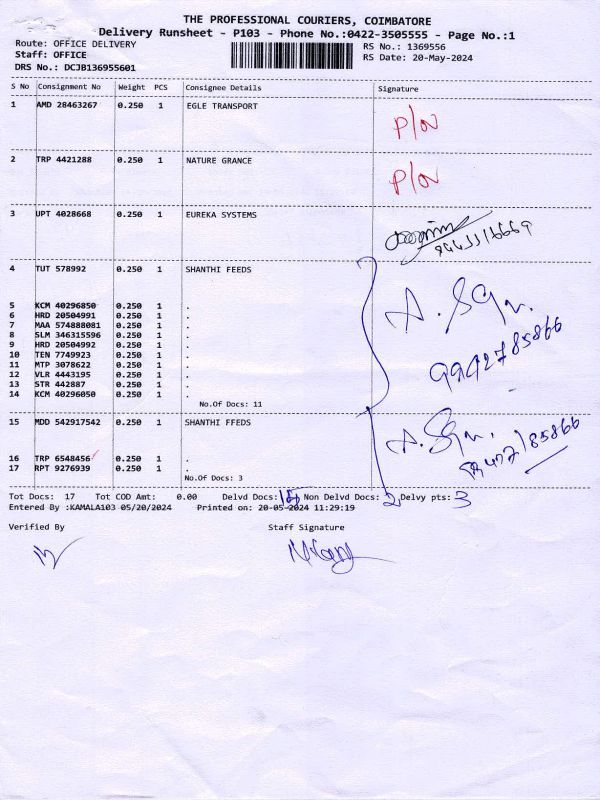 THE PROFESSIONAL COURIERS, COIMBATORE
Delivery Runsheet - P103 - Phone No.:0422-3505555 - Page No.:1
Route: OFFICE DELIVERY RS No.: 1369556
Staff: OFFICE RS Date: 20-May-2024
DRS No.: DCJB136955601
S No Consignment No Weight PCS Consignee Details Signature
1 AMD 28463267 0.250 1 EGLE TRANSPORT
P/ov
2 TRP 4421288 0.250 1 NATURE GRANCE
P/ov
3 UPT 4028668 0.250 1 EUREKA SYSTEMS
4 TUT 578992 0.250 1 SHANTHI FEEDS
5 KCM 40296850 0.250 1 .
6 HRD 20504991 0.250 1 .
7 MAA 574888081 0.250 1 .
8 SLM 346315596 0.250 1 .
9 HRD 20504992 0.250 1 .
10 TEN 7749923 0.250 1 .
11 MTP 3078622 0.250 1 .
12 VLR 4443195 0.250 1 .
13 STR 442887 0.250 1 .
14 KCM 40296050 0.250 1 .
9942785866
No.Of Docs: 11
15 MDD 542917542 0.250 1 SHANTHI FFEDS
16 TRP 6548456 0.250 1 .
17 RPT 9276939 0.250 1 .
No.Of Docs: 3
Tot Docs: 17 Tot COD Amt: 0.00 Delvd Docs: 15 Non Delvd Docs: 2 Delvy pts: 3
Entered By :KAMALA103 05/20/2024 Printed on: 20-05-2024 11:29:19
Verified By Staff Signature